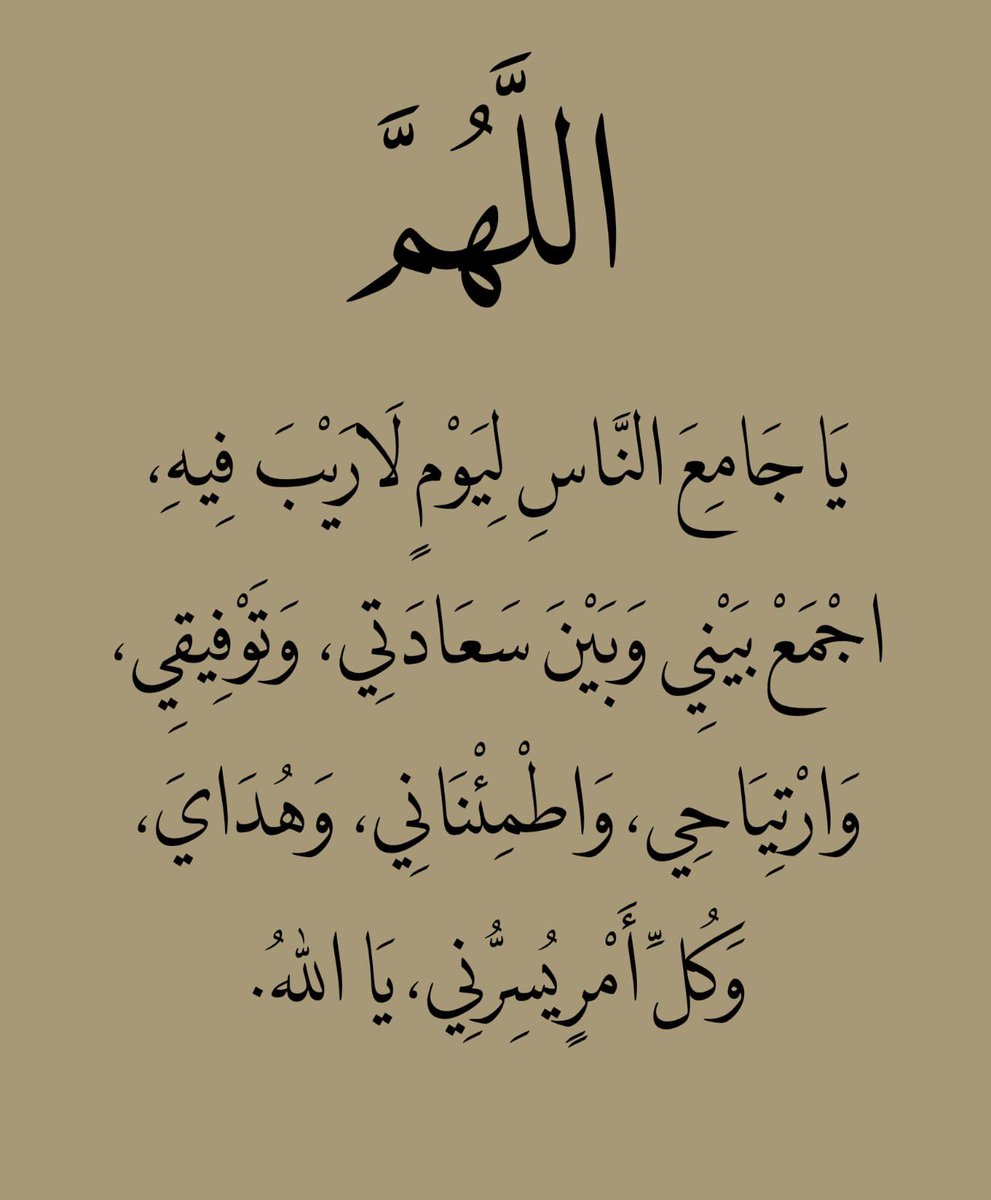 اللَّهُمَّ
يَا جَامِعَ النَّاسِ لِيَوْمٍ لَا رَيْبَ فِيهِ،
اجْمَعْ بَيْنِي وَبَيْنَ سَعَادَتِي، وَتَوْفِيقِي،
وَارْتِيَاحِي، وَاطْمِئْنَانِي، وَهُدَايَ،
وَكُلِّ أَمْرٍ يُسِرُّنِي، يَا اللهُ.